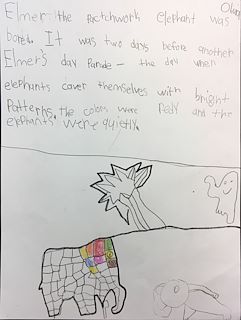 Elmer the Patchwork elephant was
bored. It was two days before another
Elmer's day Parade - the day when
elephants cover themselves with bright
Patterns. the colors were redy and the
elephants were quietly.